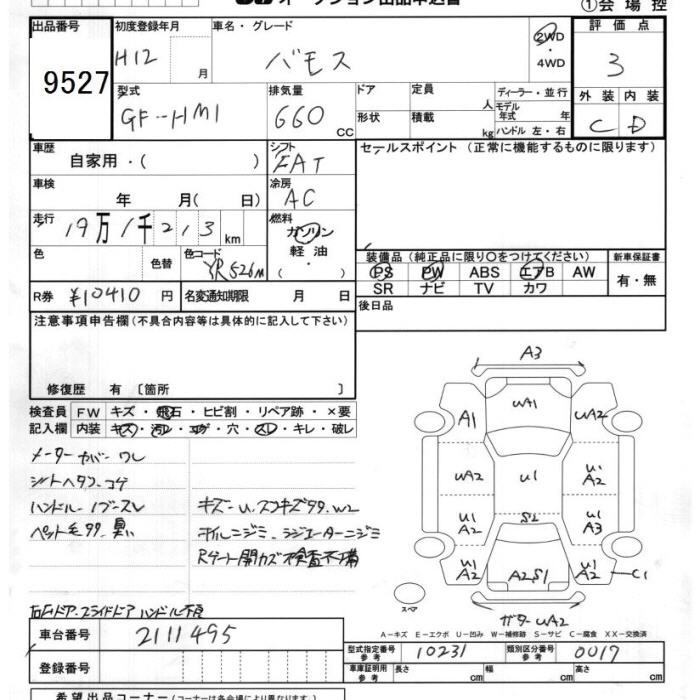 ①会場控
出品番号
9527
初度登録年月
H12 月
車名・グレード
バモス
2WD
・
4WD
評価点
3
型式
GF-HM1
排気量
660 CC
ドア
形状
定員 人
積載 kg
ディーラー・並行
モデル年式 年
ハンドル 左・右
外装 内装
C D
車歴
自家用・( )
シフト
FAT
セールスポイント (正常に機能するものに限ります)
車検
年 月( 日)
冷房
AC
走行
19万1千213 km
燃料
ガソリン
軽油
・
( )
色
色替
色コード
YR526M
装備品 (純正品に限り○をつけてください)
PS PW ABS エアB AW
SR ナビ TV カワ
新車保証書
有・無
R券 ¥10410円
名変通知期限 月 日
後日品
注意事項申告欄 (不具合内容等は具体的に記入して下さい)
修復歴 有 〔箇所 〕
検査員 FW キズ・飛石・ヒビ割・リペア跡・×要
記入欄 内装 キズ・汚レ・コゲ・穴・スレ・キレ・破レ
メーターカバーワレ
シートヘタリ.コゲ
ハンドル・1ブースレ
ペット毛99.臭い
キズ-U.スリキズ99.W2
オイルニジミ.ラジエーターニジミ
Rゲート開カズ検査不備
右Fドア.スライドドアハンドル不良
A3
A1 WA1 WA2
WA2 U1 U1 A2
U1 A2 S2 U1 A3
U1 A2 A2S1 U1 A2 C1
スペア
ガターWA2
A-キズ E-エクボ U-凹み W-補修跡 S-サビ C-腐食 XX-交換済
車台番号 2111495
型式指定番号 参考 10231
類別区分番号 参考 0017
登録番号
車庫証明用 参考 長さ cm 幅 cm 高さ cm
希望出品コーナー (コーナーは各会場により異なります)